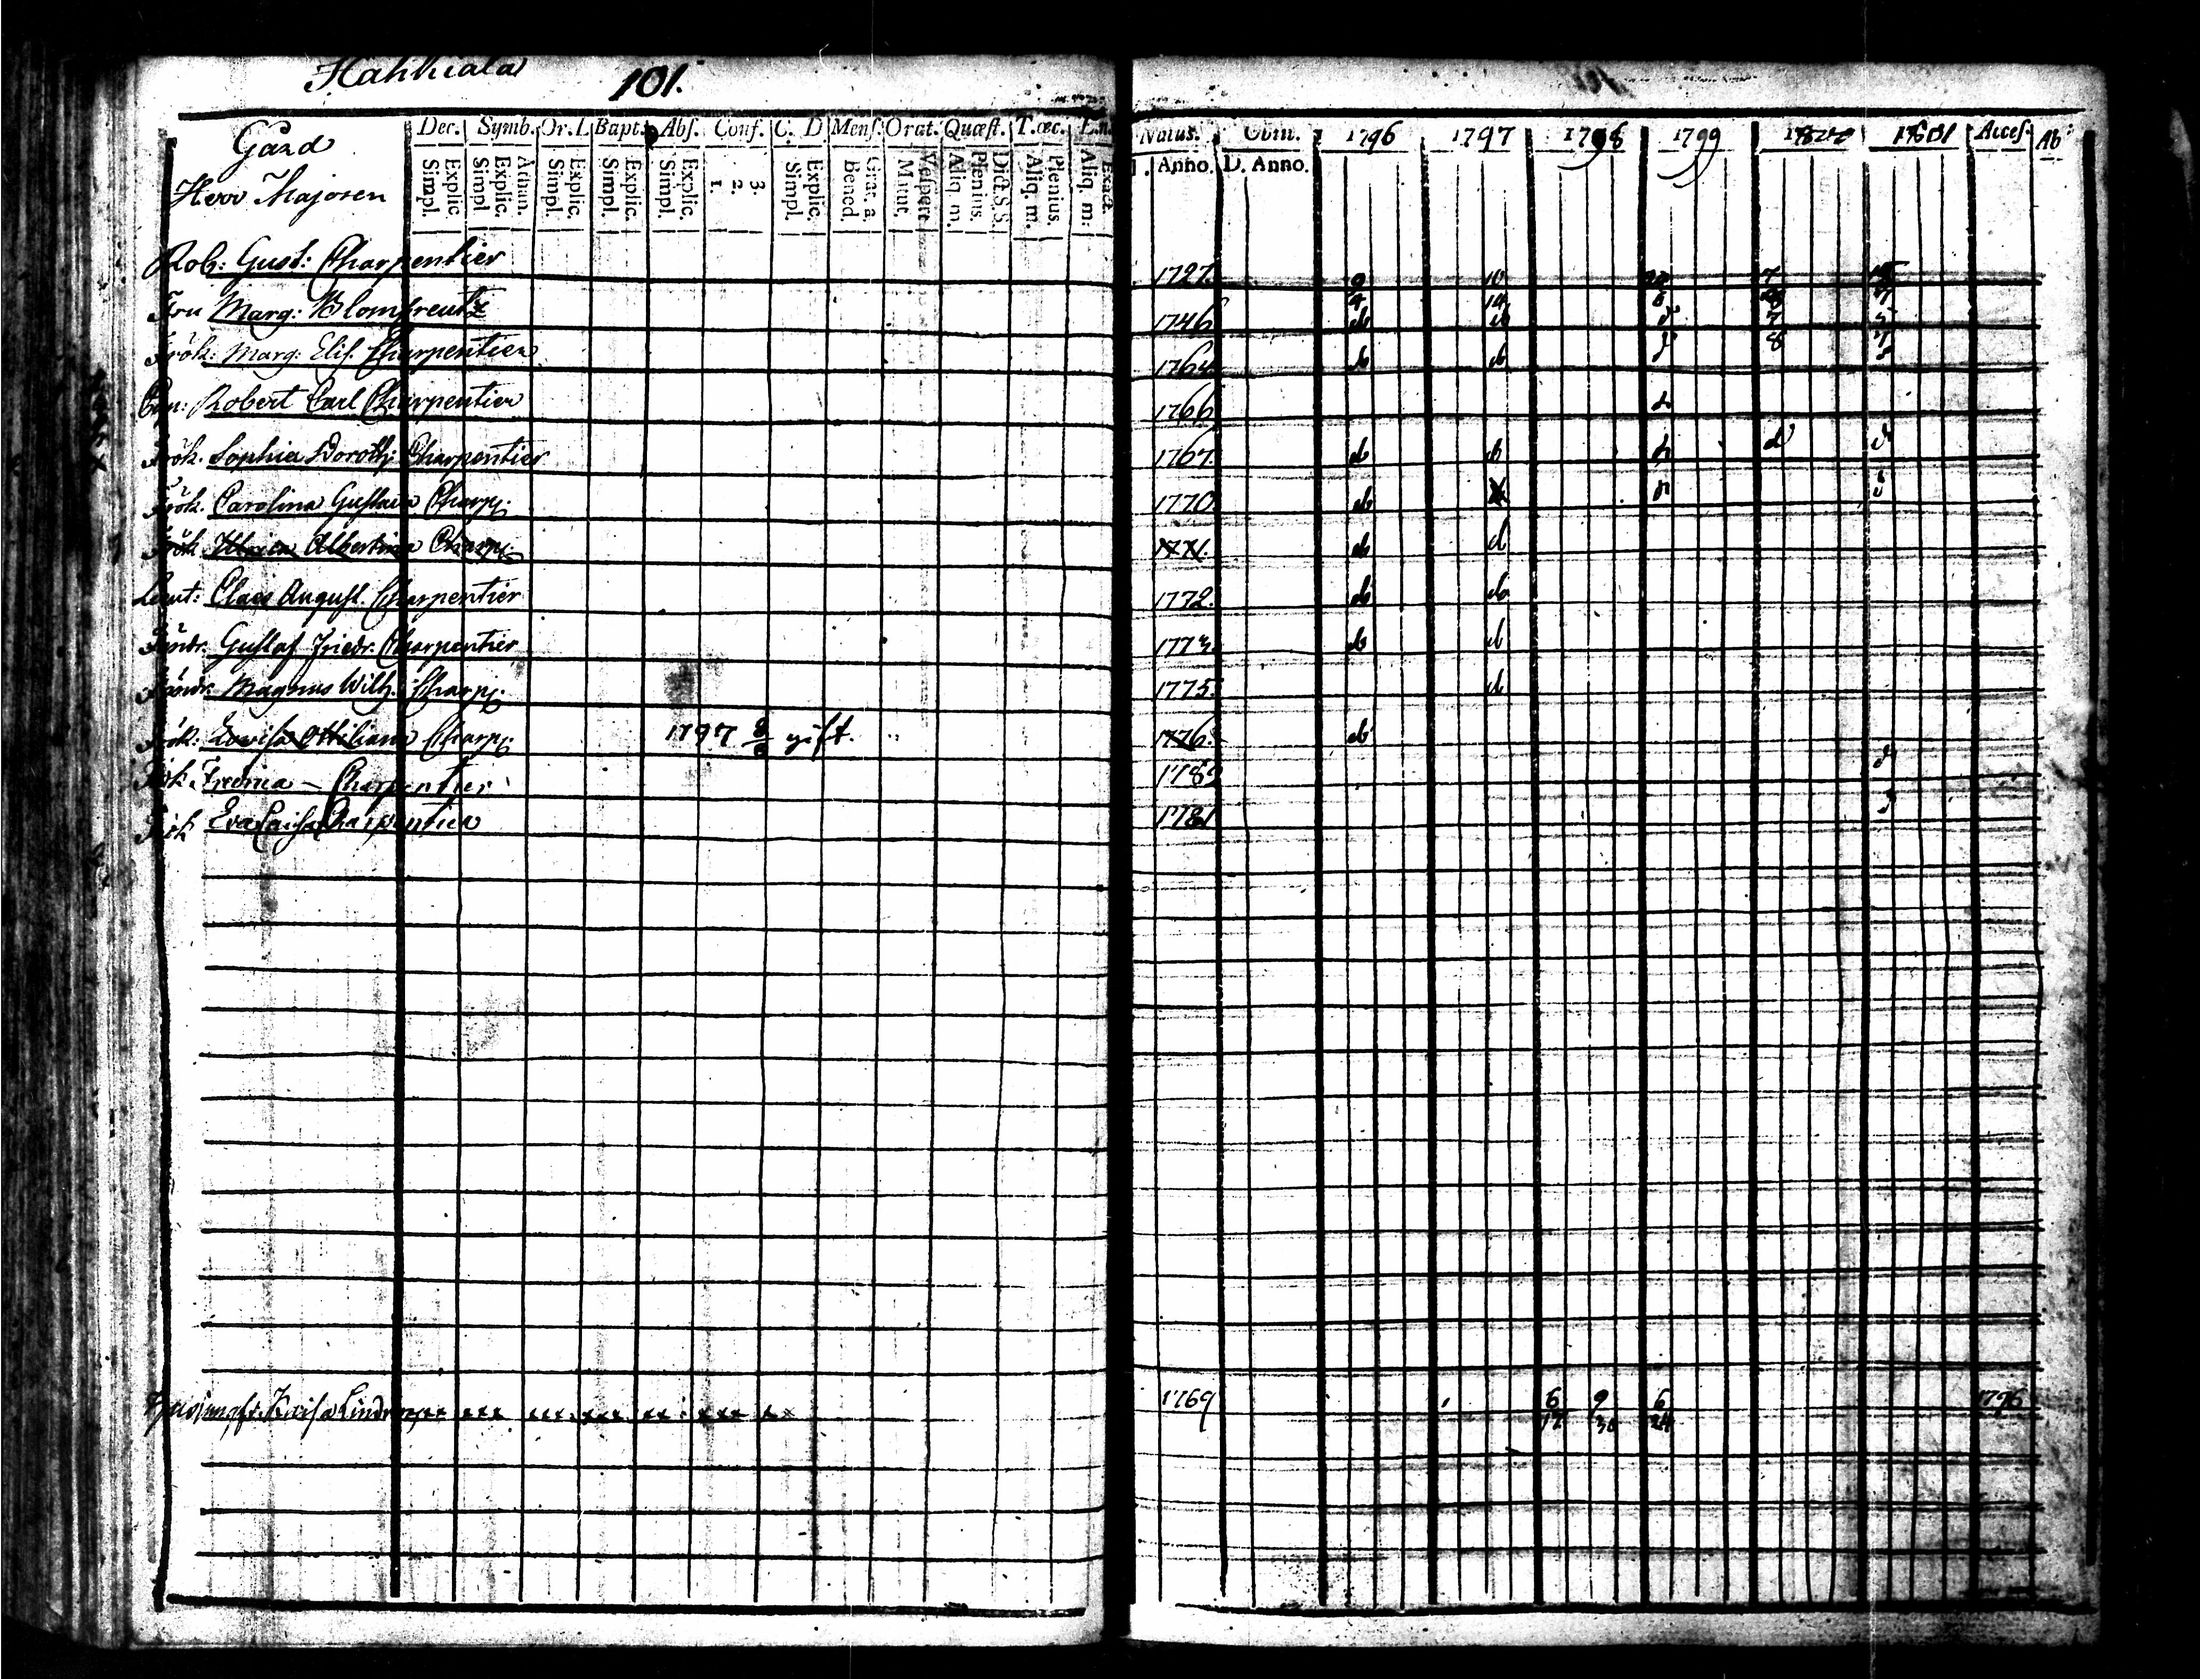 Hahkiala 101.
Dec. Symb. Or. L. Bapt. Abs. Conf. C. D Mens. Orat. Quæst. T. œc. Natus. Obiit. 1796 1797 1798 1799 1800 1801 Acces. Ab:
Simpl. Explic. Simpl. Explic. Athan. Simpl. Explic. Simpl. Explic. Simpl. Explic. 1. 2. 3. Simpl. Explic. Bened. Grat. a. Matut. Vespert. Aliq. m. Plenius. Dict. S. S. Aliq. m. Plenius. Aliq. m. Exact. Anno. D. Anno.
Gård
Herr Majoren
Rob: Gust: Charpentier 1727.
Fru Marg: Blomcreutz 1746
Frök: Marg: Elis. Charpentier 1764
Robert Carl Charpentier 1766
Frök. Sophia Doroth: Charpentier 1767.
Frök. Carolina Gustava Charp. 1770
Frök Ulrica Albertina Charp. 1771.
Lieut: Claes August. Charpentier 1772.
Fändr. Gustaf Friedr. Charpentier 1773
Fändr. Magnus Wilh. Charp. 1775.
Frök: Lovisa Ottiliana Charp. 1797 gift. 1776.
Frök Fredrica – Charpentier 1782
Frök Eva Caisa Charpentier 1781
Kaisa 1769 6/12 9/30 6/24 1796